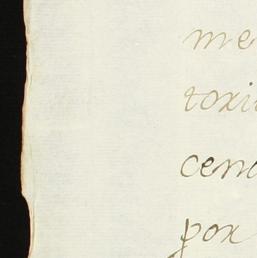 me
toxi
cen
pox